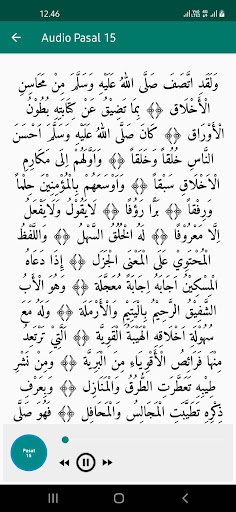 12.46
Audio Pasal 15
وَلَقَدِ اتَّصَفَ صَلَّى اللهُ عَلَيْهِ وَسَلَّمَ مِنْ مَحَاسِنِ
الْأَخْلَاقِ ﴿﴾ بِمَا تَضِيْقُ عَنْ كِتَابَتِهِ بُطُوْنُ
الْأَوْرَاقِ ﴿﴾ كَانَ صَلَّى اللهُ عَلَيْهِ وَسَلَّمَ اَحْسَنَ
النَّاسِ خُلُقًا وَخَلَقًا ﴿﴾ وَاَوَّلَهُمْ اِلَى مَكَارِمِ
الْاَخْلَاقِ سَبْقًا ﴿﴾ وَاَوْسَعَهُمْ بِالْمُؤْمِنِيْنَ حِلْمًا
وَرِفْقًا ﴿﴾ بَرًّا رَؤُفًا ﴿﴾ لَايَقُوْلُ وَلَايَفْعَلُ
اِلَّا مَعْرُوْفًا ﴿﴾ لَهُ الْخُلُقُ السَّهْلُ ﴿﴾ وَاللَّفْظُ
الْمُحْتَوِيْ عَلَى الْمَعْنَى الْجَزْلِ ﴿﴾ إِذَا دَعَاهُ
الْمِسْكِيْنُ اَجَابَهُ اِجَابَةً مُعَجَّلَةً ﴿﴾ وَهُوَ الْأَبُ
الشَّفِيْقُ الرَّحِيْمُ بِالْيَتِيْمِ وَالْأَرْمَلَةِ ﴿﴾ وَلَهُ مَعَ
سُهُوْلَةِ اَخْلَاقِهِ الْهَيْبَةُ الْقَوِيَّةُ ﴿﴾ اَلَّتِيْ تَرْتَعِدُ
مِنْهَا فَرَائِصُ الْأَقْوِيَاءِ مِنَ الْبَرِيَّةِ ﴿﴾ وَمِنْ نَشْرِ
طِيْبِهِ تَعَطَّرَتِ الطُّرُقُ وَالْمَنَازِلُ ﴿﴾ وَبِعَرْفِ
ذِكْرِهِ تَطَيَّبَتِ الْمَجَالِسُ وَالْمَحَافِلُ ﴿﴾ فَهُوَ صَلَّى
Pasal
15